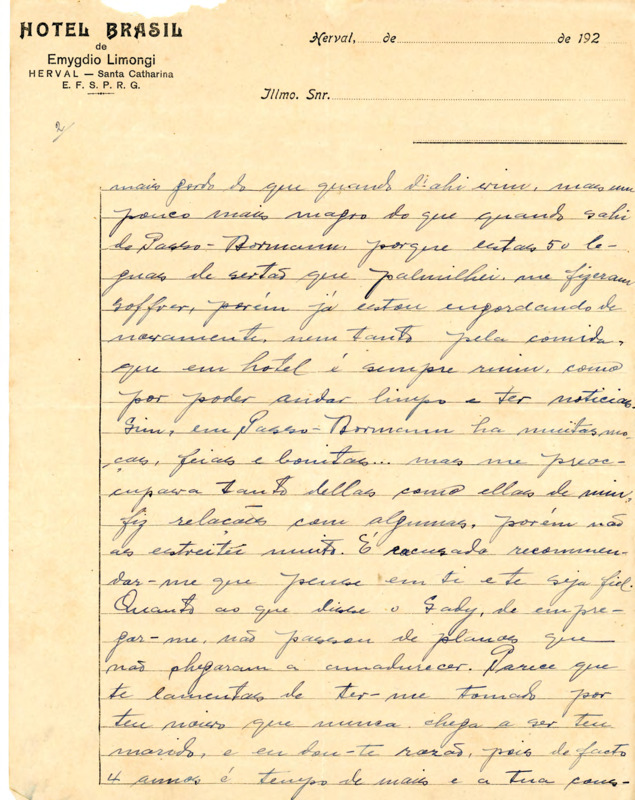 HOTEL BRASIL
de
Emygdio Limongi
HERVAL — Santa Catharina
E. F. S. P. R. G.
Herval, de de 192
Illmo. Snr.
2/
mais gordo do que quando d'ahi vim, mais um
pouco mais magro do que quando sahi
de Passo-Bormann, porque estas 50 le-
guas de sertão que palmilhei, me fizeram
soffrer, porém já estou engordando de
novamente, nem tanto pela comida,
que em hotel é sempre ruim, como
por poder andar limpo e ter noticias.
Sim, em Passo-Bormann ha muitas mo-
ças, feias e bonitas... mas me preoc-
cupava tanto dellas como ellas de mim,
fiz relações com algumas, porém não
as estreitei muito. É escusado recommen-
dar-me que pense em ti e te seja fiel.
Quanto ao que disse o Gaby, de empre-
gar-me, não passou de planos que
não chegaram a amadurecer. Parece que
te lamentas de ter-me tomado por
teu noivo que nunca chega a ser teu
marido, e eu dou-te razão, pois de facto
4 annos é tempo de mais e a tua cons-